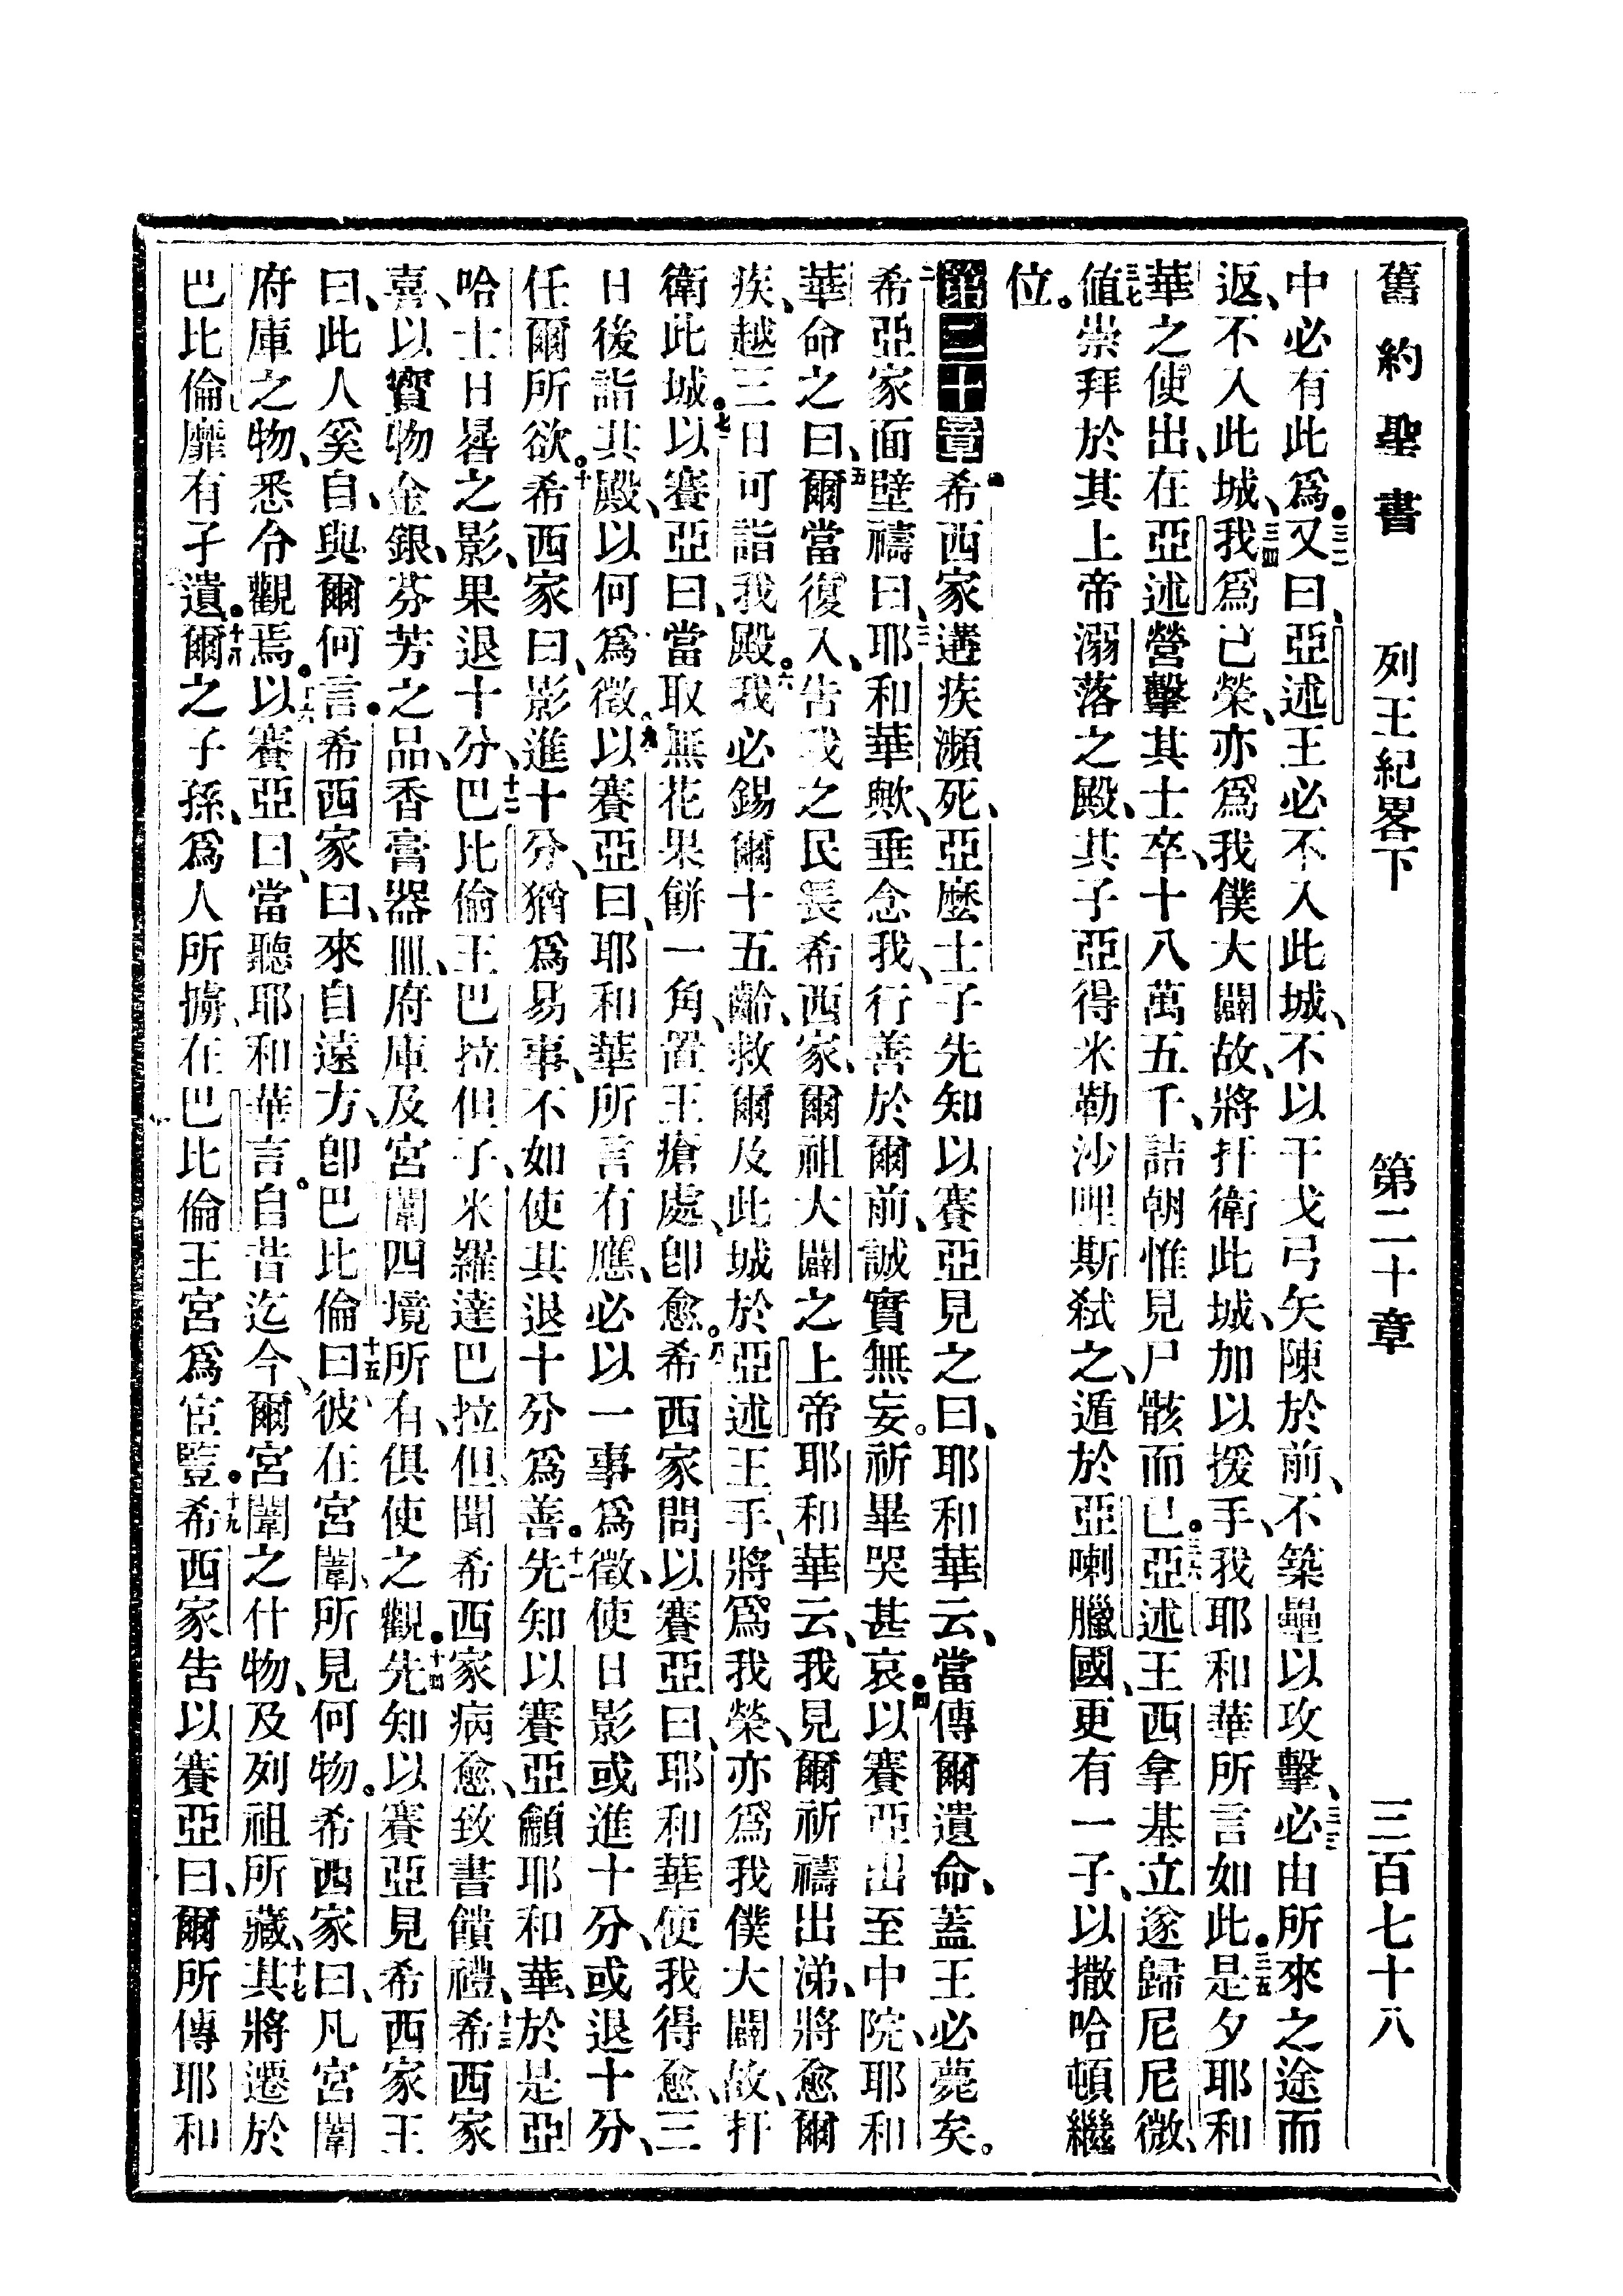 舊約聖書　列王紀畧下　第二十章　三百七十八
中必有此爲。三二又曰、亞述王必不入此城、不以干戈弓矢陳於前、不築壘以攻擊、三三必由所來之途而
返、不入此城、三四我爲己榮、亦爲我僕大闢故、將扞衛此城、加以援手、我耶和華所言如此。三五是夕耶和
華之使出、在亞述營擊其士卒、十八萬五千、詰朝惟見尸骸而已。三六亞述王西拿基立遂歸尼尼微、
三七值崇拜於其上帝溺落之殿、其子亞得米勒沙哩斯弑之、遁於亞喇臘國、更有一子、以撒哈頓繼
位。
第二十章 希西家遘疾瀕死、亞麼士子先知以賽亞見之曰、耶和華云、當傳爾遺命、蓋王必薨矣。
二希西亞家面壁禱曰、三耶和華歟、垂念我、行善於爾前、誠實無妄。祈畢哭甚哀。四以賽亞出至中院、耶和
華命之曰、五爾當復入、告我之民長希西家、爾祖大闢之上帝耶和華云、我見爾祈禱出涕、將愈爾
疾、越三日可詣我殿。六我必錫爾十五齡、救爾及此城於亞述王手、將爲我榮、亦爲我僕大闢故、扞
衛此城。七以賽亞曰、當取無花果餅一角、置王瘡處、卽愈。八希西家問以賽亞曰、耶和華使我得愈、三
日後詣其殿、以何爲徵、九以賽亞曰、耶和華所言有應、必以一事爲徵、使日影或進十分、或退十分、
任爾所欲。十希西家曰、影進十分、猶爲易事、不如使其退十分爲善。十一先知以賽亞籲耶和華、於是亞
哈士日晷之影、果退十分、十二巴比倫王巴拉但子、米羅達巴拉但、聞希西家病愈、致書饋禮、十三希西家
喜、以寶物金銀、芬芳之品、香膏器皿、府庫及宮闈四境所有、俱使之觀。十四先知以賽亞見希西家王
曰、此人奚自、與爾何言。希西家曰、來自遠方、卽巴比倫、十五曰彼在宮闈、所見何物。希西家曰、凡宮闈
府庫之物、悉令觀焉。十六以賽亞曰、當聽耶和華言。自昔迄今、爾宮闈之什物、及列祖所藏、十七其將遷於
巴比倫靡有孑遺。十八爾之子孫、爲人所擄、在巴比倫王宮爲宦豎。十九希西家告以賽亞曰、爾所傳耶和